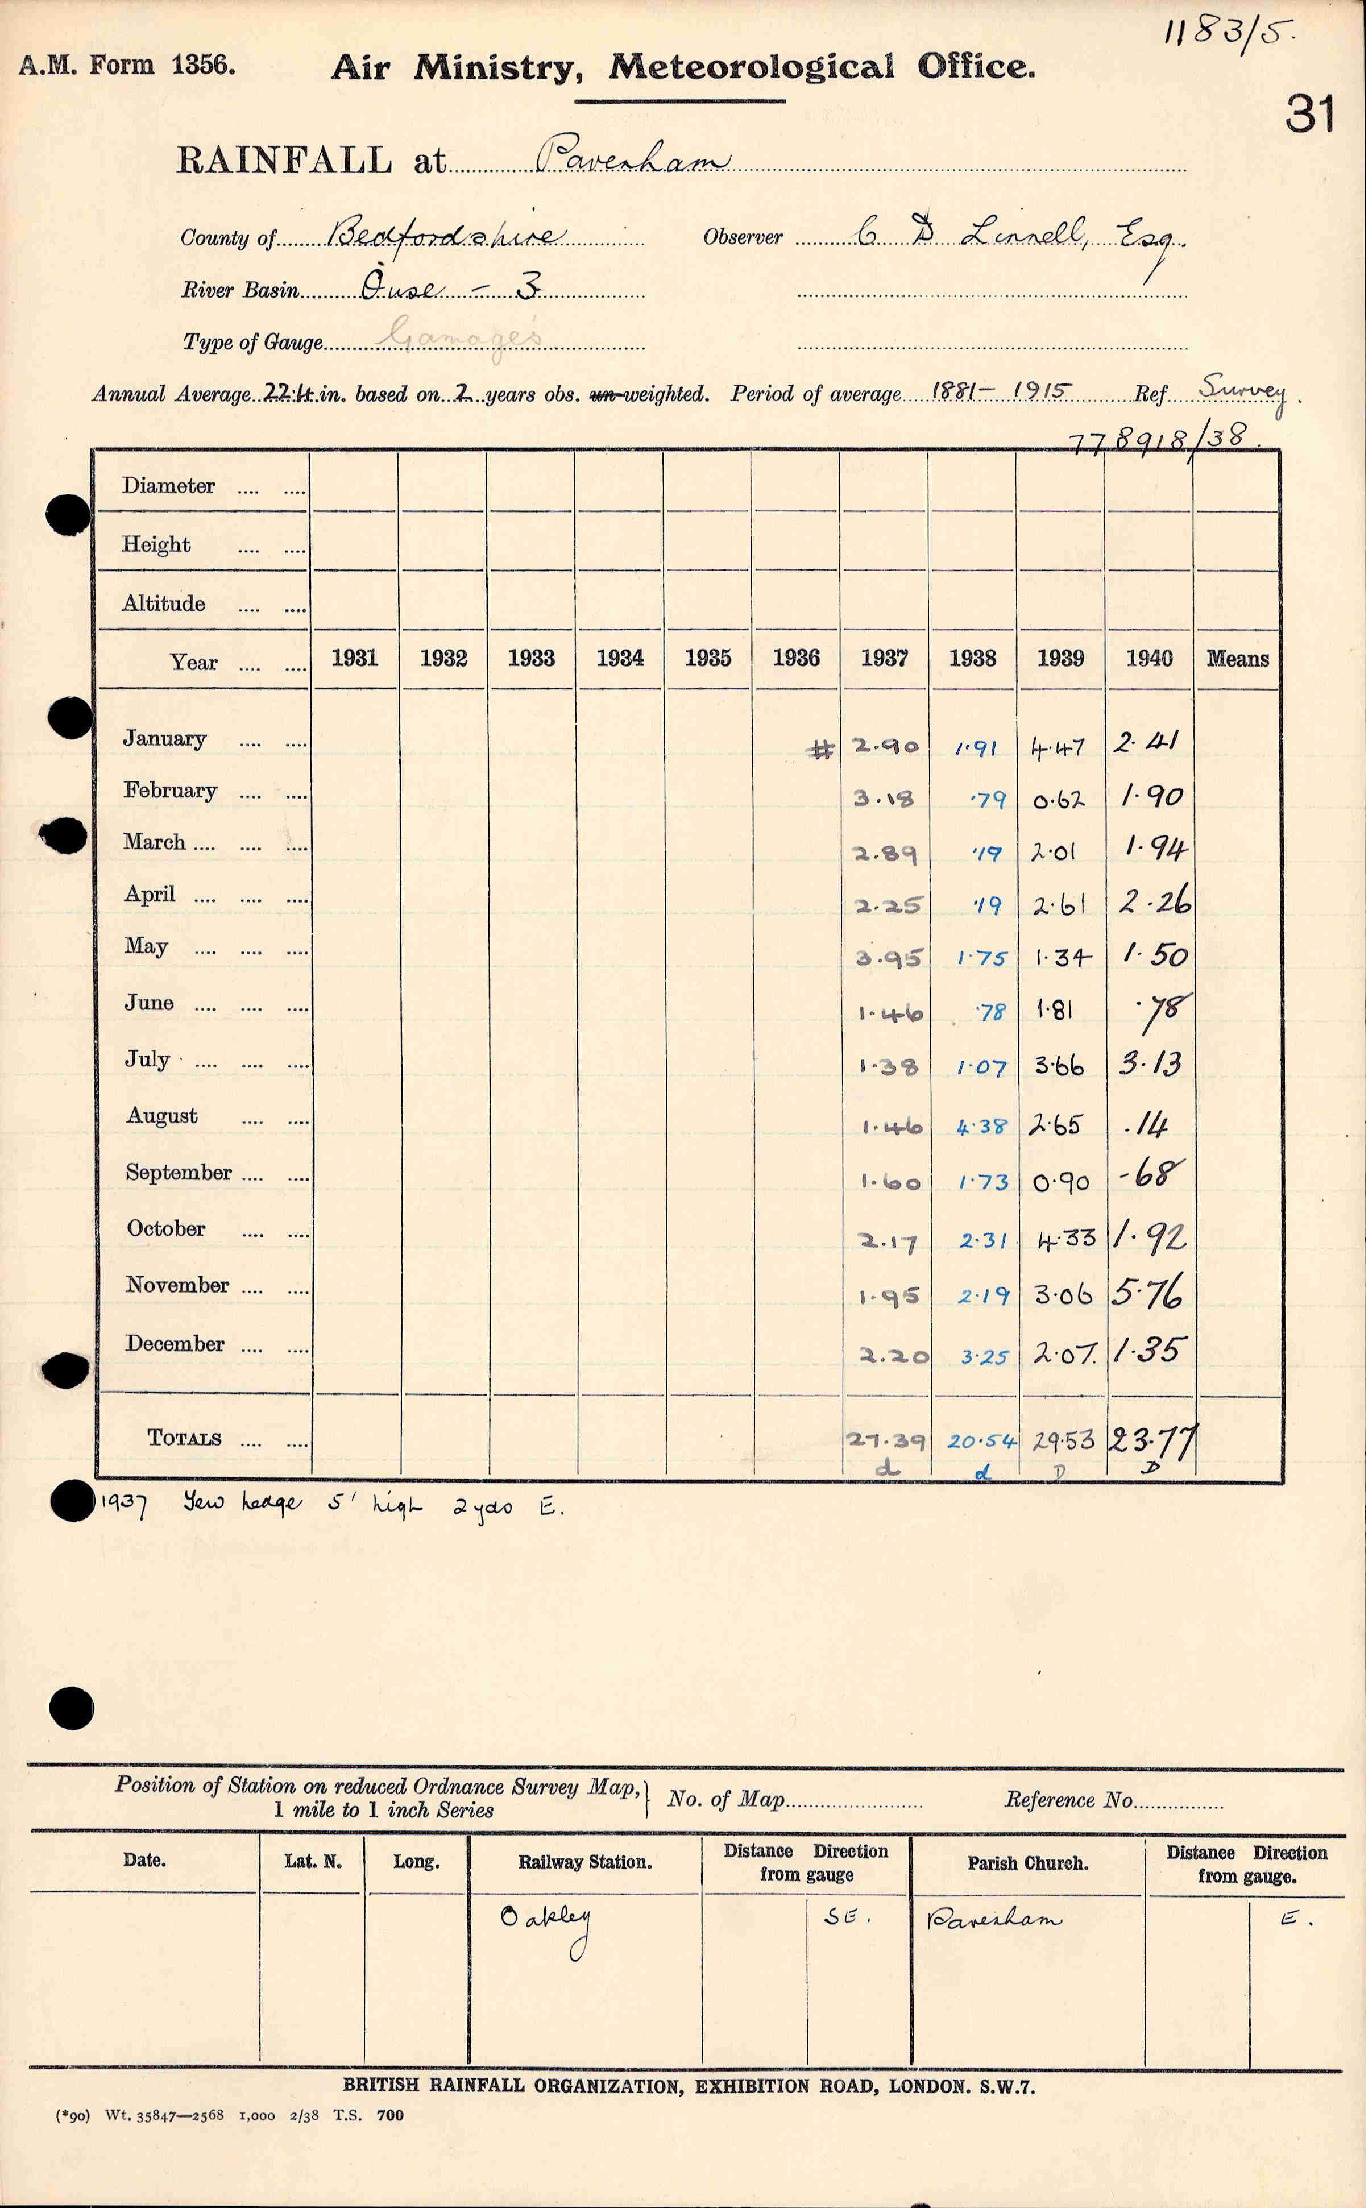 1183/5.
A.M. Form 1356. Air Ministry, Meteorological Office.
31
RAINFALL at Pavenham
County of Bedfordshire Observer C D Linnell, Esq.
River Basin Ouse - 3
Type of Gauge Gamage's
Annual Average 22.4 in. based on 2 years obs. un-weighted. Period of average 1881 - 1915 Ref Survey.
778918/38.
Diameter .... ....
Height .... ....
Altitude .... ....
Year .... .... 1931 1932 1933 1934 1935 1936 1937 1938 1939 1940 Means
January .... .... # 2.90 1.91 4.47 2.41
February .... .... 3.18 .79 0.62 1.90
March .... .... .... 2.89 .19 2.01 1.94
April .... .... .... 2.25 .19 2.61 2.26
May .... .... .... 3.95 1.75 1.34 1.50
June .... .... .... 1.46 .78 1.81 .78
July .... .... .... 1.38 1.07 3.66 3.13
August .... .... 1.46 4.38 2.65 .14
September .... .... 1.60 1.73 0.90 .68
October .... .... 2.17 2.31 4.33 1.92
November .... .... 1.95 2.19 3.06 5.76
December .... .... 2.20 3.25 2.07. 1.35
TOTALS .... .... 27.39 20.54 29.53 23.77
d d D D
1937 Yew hedge 5' high 2 yds E.
Position of Station on reduced Ordnance Survey Map, } No. of Map Reference No.
1 mile to 1 inch Series
Date. Lat. N. Long. Railway Station. Distance Direction from gauge Parish Church. Distance Direction from gauge.
Oakley SE. Pavenham E.
BRITISH RAINFALL ORGANIZATION, EXHIBITION ROAD, LONDON. S.W.7.
(*90) Wt. 35847—2568 1,000 2/38 T.S. 700